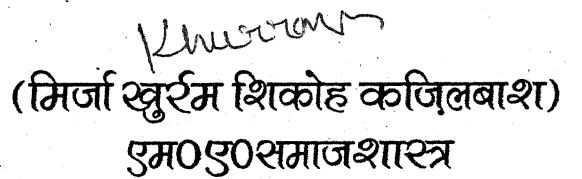 Khurram
(मिर्जा खुर्रम शिकोह कज़िलबाश)
एम0ए0समाजशास्त्र